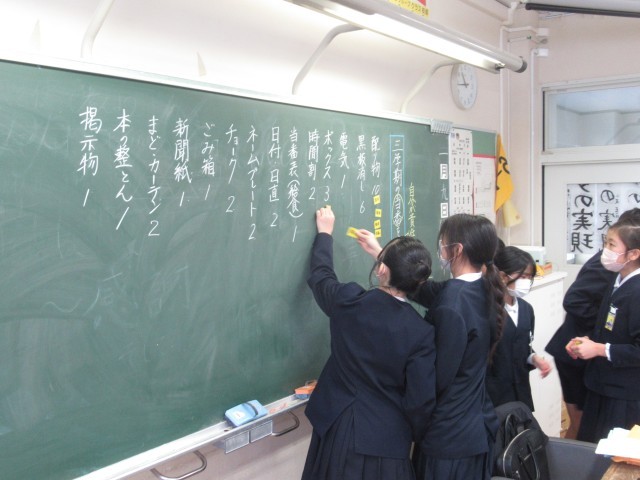 一月九日
三学期の当番
配り物 10
黒板消し 6
電気 1
ボックス 3
時間割 2
当番表(給食) 1
日付・日直 2
ネームプレート 2
チョーク 2
ごみ箱 1
新聞紙 1
まど・カーテン 2
本の整とん 1
掲示物 1
の実現